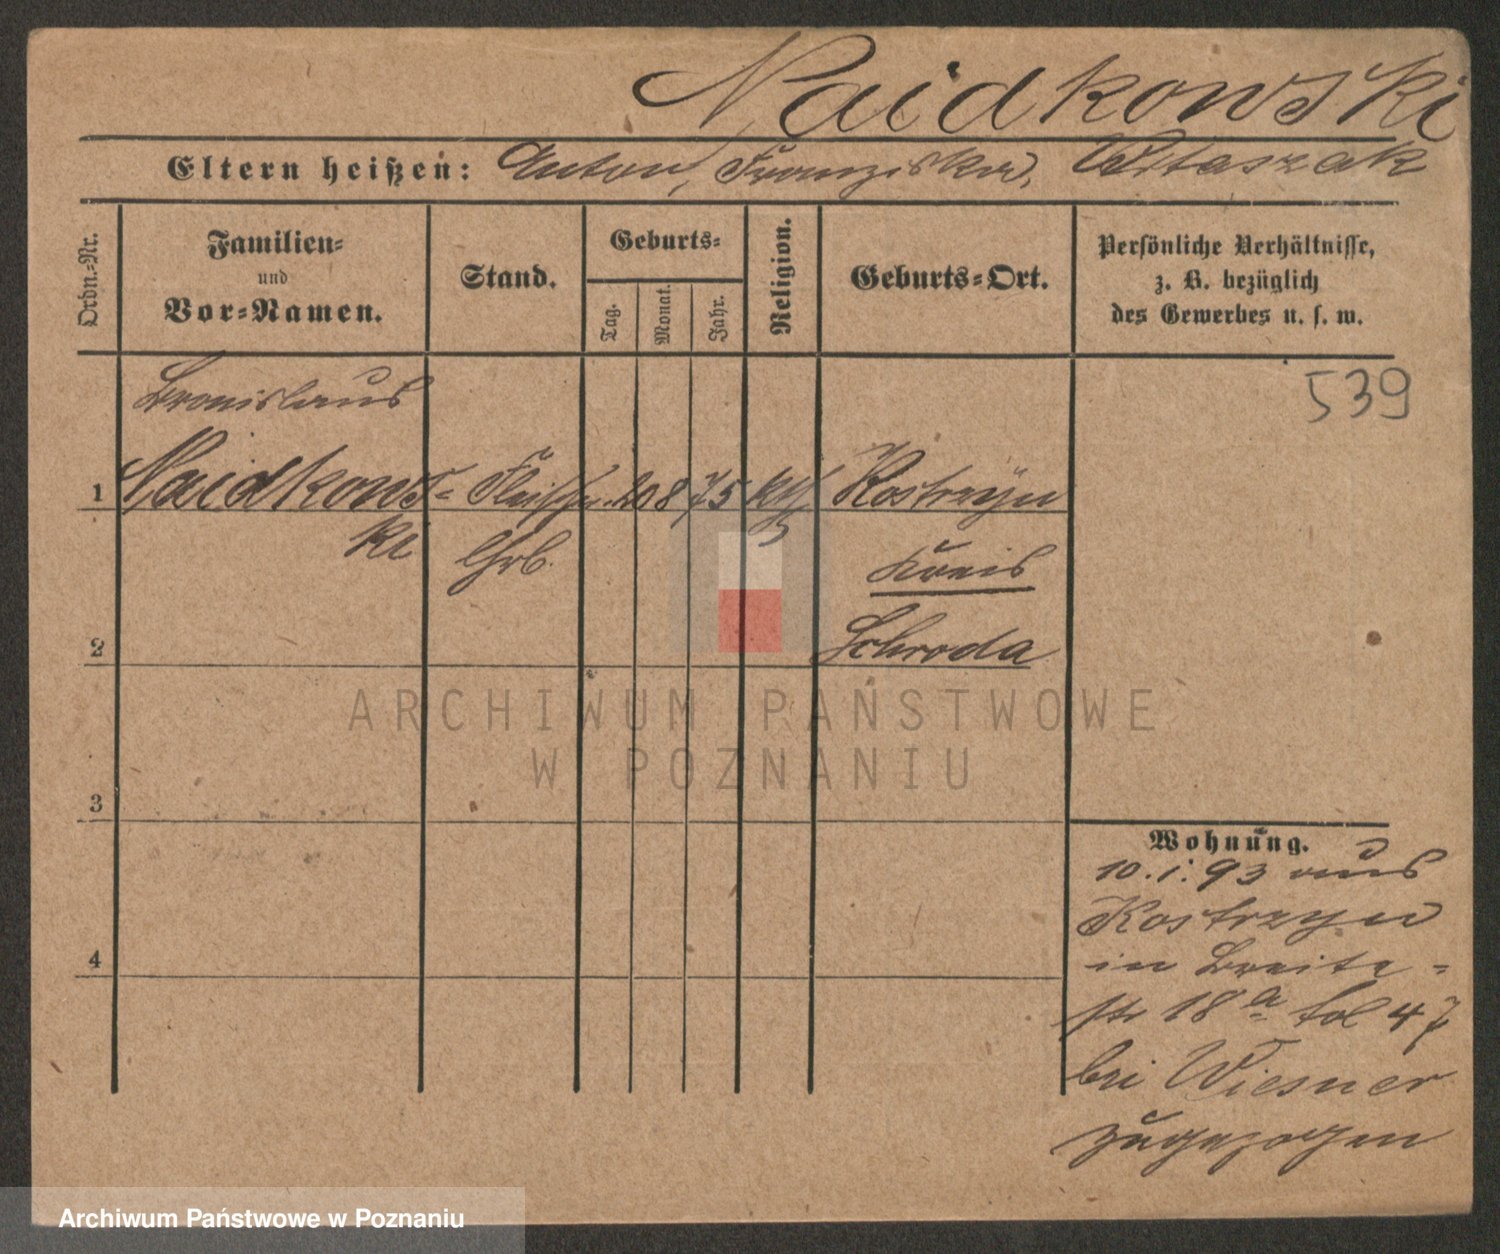 Naidkowski
Eltern heißen: Anton, Franziska, Wtaszak
Ordn.-Nr.
Familien-
und
Vor-Namen.
Stand.
Geburts-
Tag.
Monat.
Jahr.
Religion.
Geburts-Ort.
Persönliche Verhältnisse,
z. B. bezüglich
des Gewerbes u. s. w.
539
Bronislaus
1 Naidkows- Fleischer 20 8 75 kth Kostrzyn
ki Gew. Kreis
2 Schroda
ARCHIWUM PAŃSTWOWE
W POZNANIU
3
Wohnung.
10.1.93 aus
Kostrzyn
4 in Breite-
str 18a fol 47
bei Wiesner
zugezogen
Archiwum Państwowe w Poznaniu